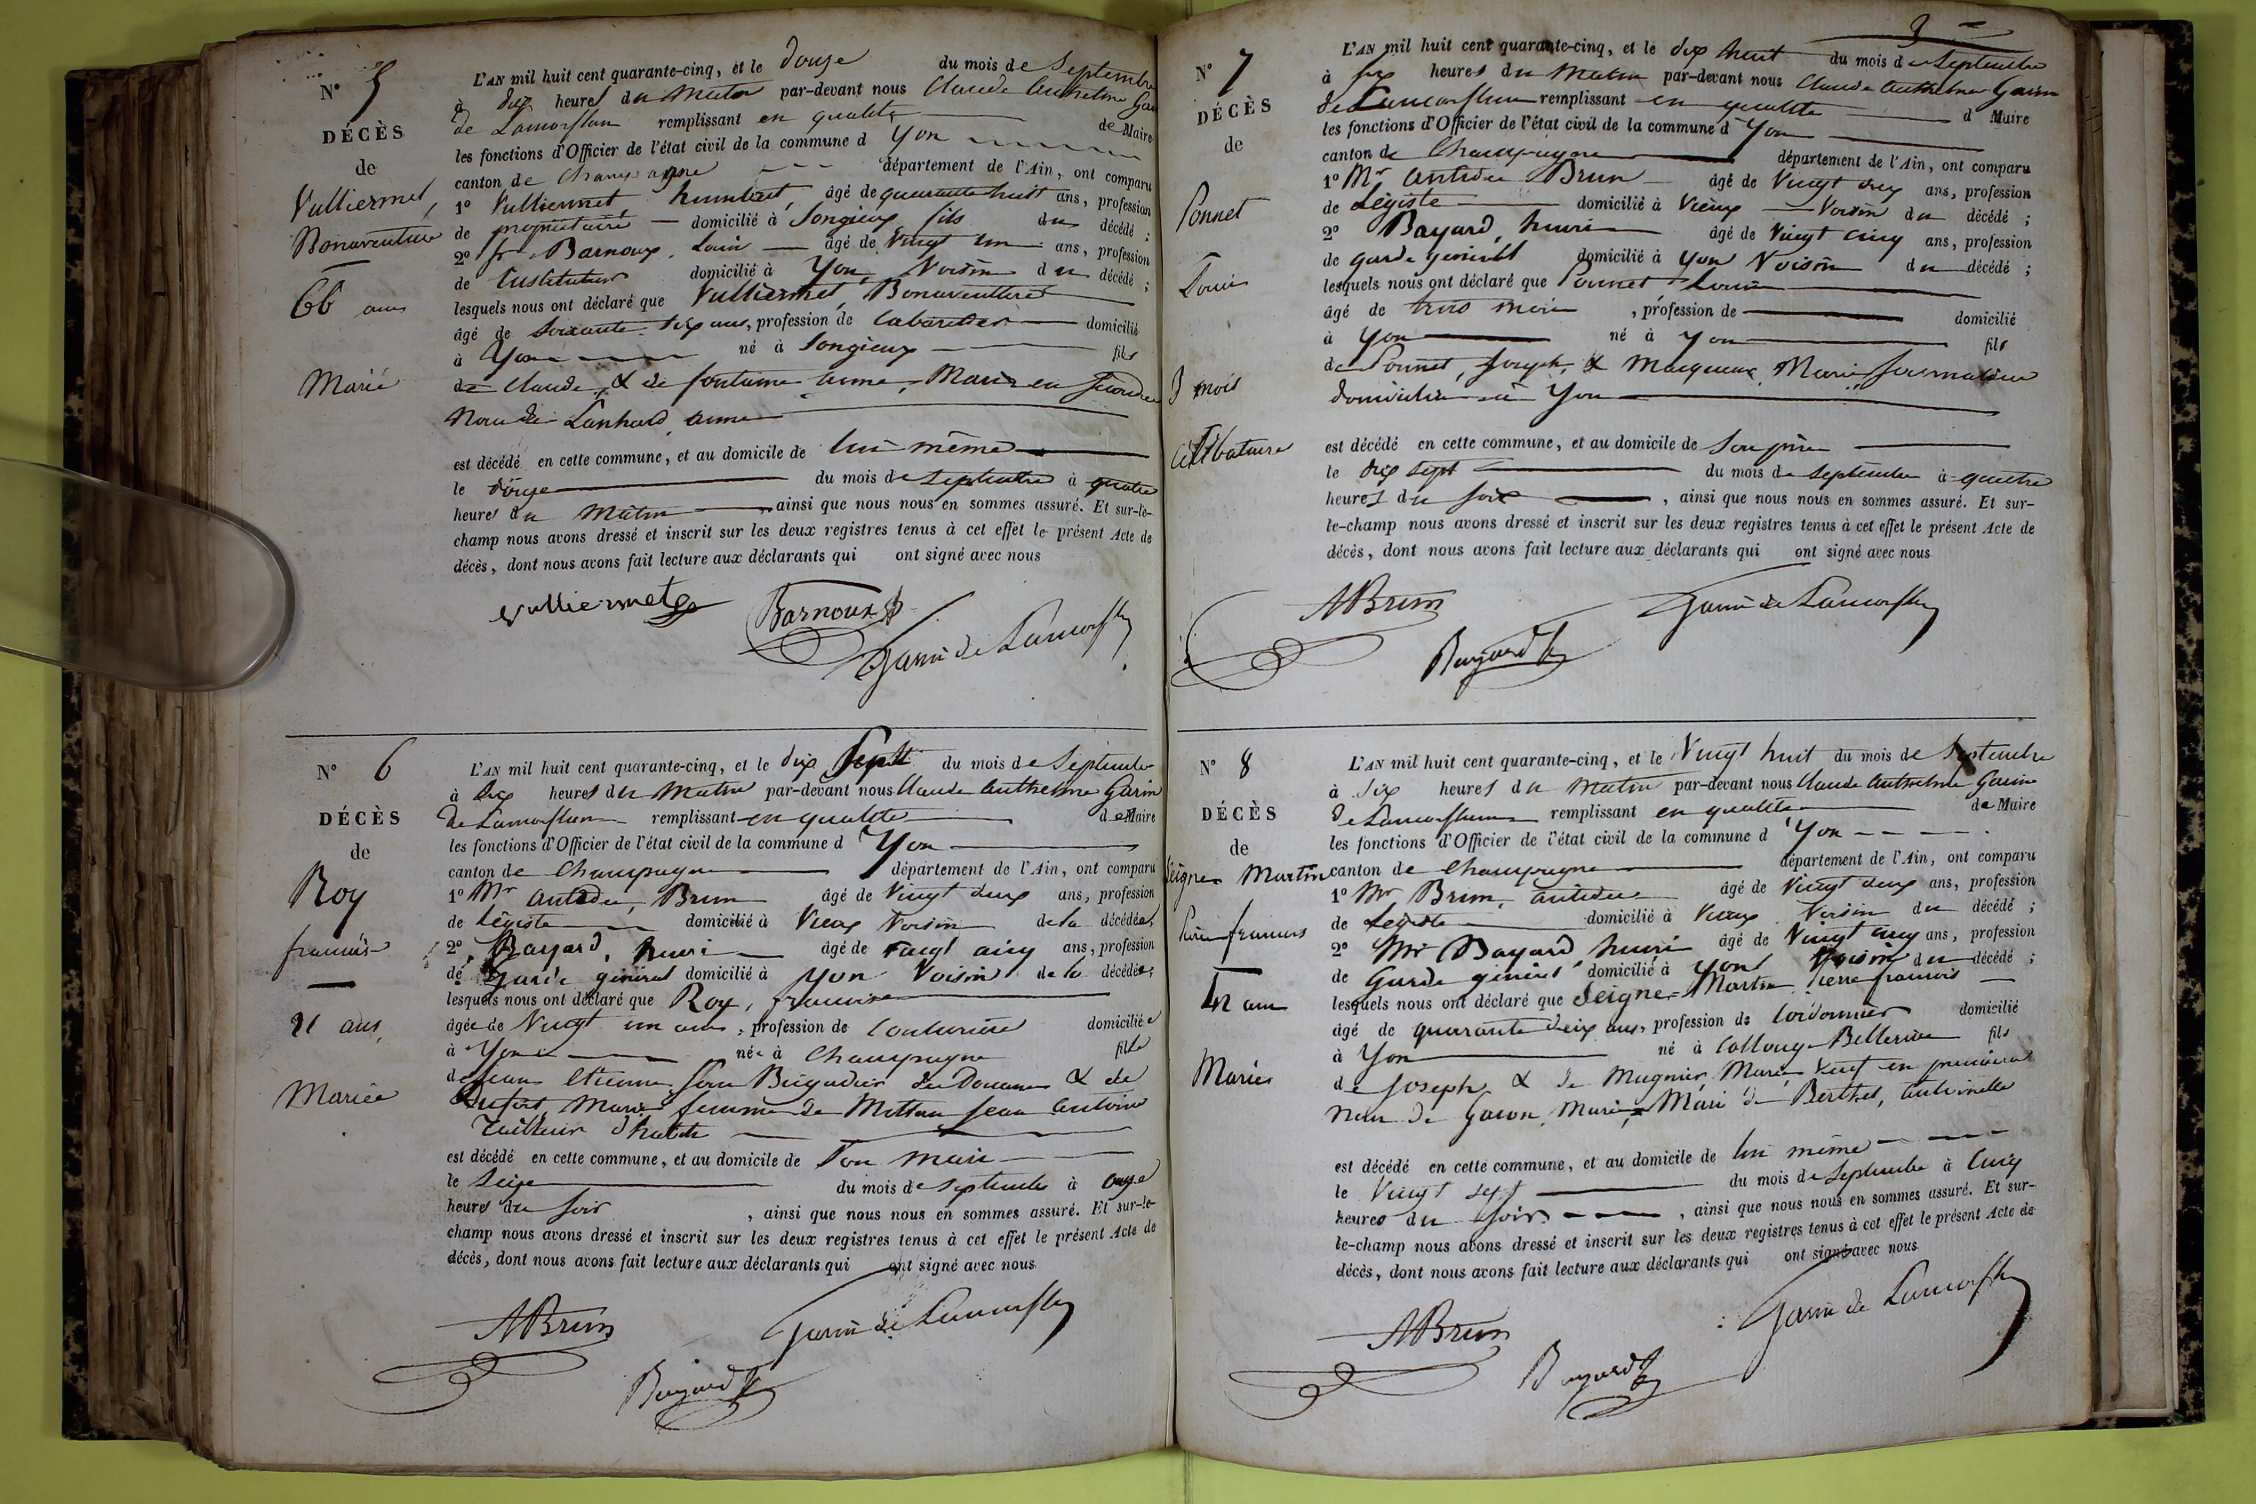 N° 5
DÉCÈS
de
Vulliermet,
Bonaventure
66 ans
Marié
L'AN mil huit cent quarante-cinq, et le douze du mois de Septembre
à dix heures du Matin par-devant nous Claude Anthelme Gar
de Lamorflan remplissant en qualité de Maire
les fonctions d'Officier de l'état civil de la commune d Yon
canton de Champagne département de l'Ain, ont comparu
1° Vulliermet humbert, âgé de quarante huit ans, profession
de propriétaire domicilié à Songieux fils du décédé ;
2° Barnoux, Louis âgé de Vingt un ans, profession
de Instituteur domicilié à Yon Voisin du décédé ;
lesquels nous ont déclaré que Vulliermet, Bonaventure
âgé de Soixante six ans, profession de Cabaretier domicilié
à Yon né à Songieux fils
de Claude, & de fontaine anne, Marié en Secondes
Noces à Lanhard anne
est décédé en cette commune, et au domicile de lui même
le douze du mois de Septembre à quatre
heures du Matin ainsi que nous nous en sommes assuré. Et sur-le-
champ nous avons dressé et inscrit sur les deux registres tenus à cet effet le présent Acte de
décès, dont nous avons fait lecture aux déclarants qui ont signé avec nous
Vulliermet Barnoux
Garin de Lamorflan
N° 6
DÉCÈS
de
Roy
francoise
21 ans,
Mariée
L'AN mil huit cent quarante-cinq, et le dix Sept du mois de Septembre
à dix heures du Matin par-devant nous Claude Anthelme Garin
de Lamorflan remplissant en qualité de Maire
les fonctions d'Officier de l'état civil de la commune d Yon
canton de Champagne département de l'Ain, ont comparu
1° Mr antidée, Brun âgé de Vingt deux ans, profession
de Légiste domicilié à Vieux Voisin de la décédée ;
2° Bayard, henri âgé de Vingt cinq ans, profession
de Garde général domicilié à Yon Voisin de la décédée ;
lesquels nous ont déclaré que Roy, francoise
âgée de Vingt un ans, profession de Couturière domiciliée
à Yon née à Champagne fille
de Jean Etienne Sous Brigadier des Douanes & de
Marie femme de Jean Antoine
Tailleur d'habits
est décédé en cette commune, et au domicile de Son Mari
le Seize du mois de Septembre à onze
heures du Soir, ainsi que nous nous en sommes assuré. Et sur-le-
champ nous avons dressé et inscrit sur les deux registres tenus à cet effet le présent Acte de
décès, dont nous avons fait lecture aux déclarants qui ont signé avec nous
ABrun Garin de Lamorflan
Bayard h
3
N° 7
DÉCÈS
de
Ponnet
Louis
3 mois
Célibataire
L'AN mil huit cent quarante-cinq, et le dix huit du mois de Septembre
à six heures du Matin par-devant nous Claude Anthelme Garin
de Lamorflan remplissant en qualité d Maire
les fonctions d'Officier de l'état civil de la commune d Yon
canton de Champagne département de l'Ain, ont comparu
1° Mr antidée Brun âgé de Vingt deux ans, profession
de Légiste domicilié à Vieux Voisin du décédé ;
2° Bayard, henri âgé de Vingt cinq ans, profession
de garde général domicilié à Yon Voisin du décédé ;
lesquels nous ont déclaré que Ponnet Louis
âgé de trois mois, profession de domicilié
à Yon né à Yon fils
de Ponnet, Joseph, & Marie Journaliers
domiciliés à Yon
est décédé en cette commune, et au domicile de Son père
le dix sept du mois de Septembre à quatre
heures du Soir, ainsi que nous nous en sommes assuré. Et sur-
le-champ nous avons dressé et inscrit sur les deux registres tenus à cet effet le présent Acte de
décès, dont nous avons fait lecture aux déclarants qui ont signé avec nous
ABrun Garin de Lamorflan
Bayard h
N° 8
DÉCÈS
de
Seigne Martin
Pierre francois
42 ans
Marié
L'AN mil huit cent quarante-cinq, et le Vingt huit du mois de Septembre
à dix heures du Matin par-devant nous Claude Anthelme Garin
de Lamorflan remplissant en qualité de Maire
les fonctions d'Officier de l'état civil de la commune d Yon
canton de Champagne département de l'Ain, ont comparu
1° Mr Brun, antidée âgé de Vingt deux ans, profession
de Légiste domicilié à Vieux Voisin du décédé ;
2° Mr Bayard henri âgé de Vingt cinq ans, profession
de Garde général domicilié à Yon Voisin du décédé ;
lesquels nous ont déclaré que Seigne Martin Pierre francois
âgé de quarante deux ans, profession de Cordonnier domicilié
à Yon né à fils
de Joseph & de Mugnier Marie Veuf en premières
Noces de Gacon, Marie, Mari de Berthet, antoinette
est décédé en cette commune, et au domicile de lui même
le Vingt sept du mois de Septembre à Cinq
heures du Soir, ainsi que nous nous en sommes assuré. Et sur-
le-champ nous avons dressé et inscrit sur les deux registres tenus à cet effet le présent Acte de
décès, dont nous avons fait lecture aux déclarants qui ont signé avec nous
ABrun Garin de Lamorflan
Bayard h